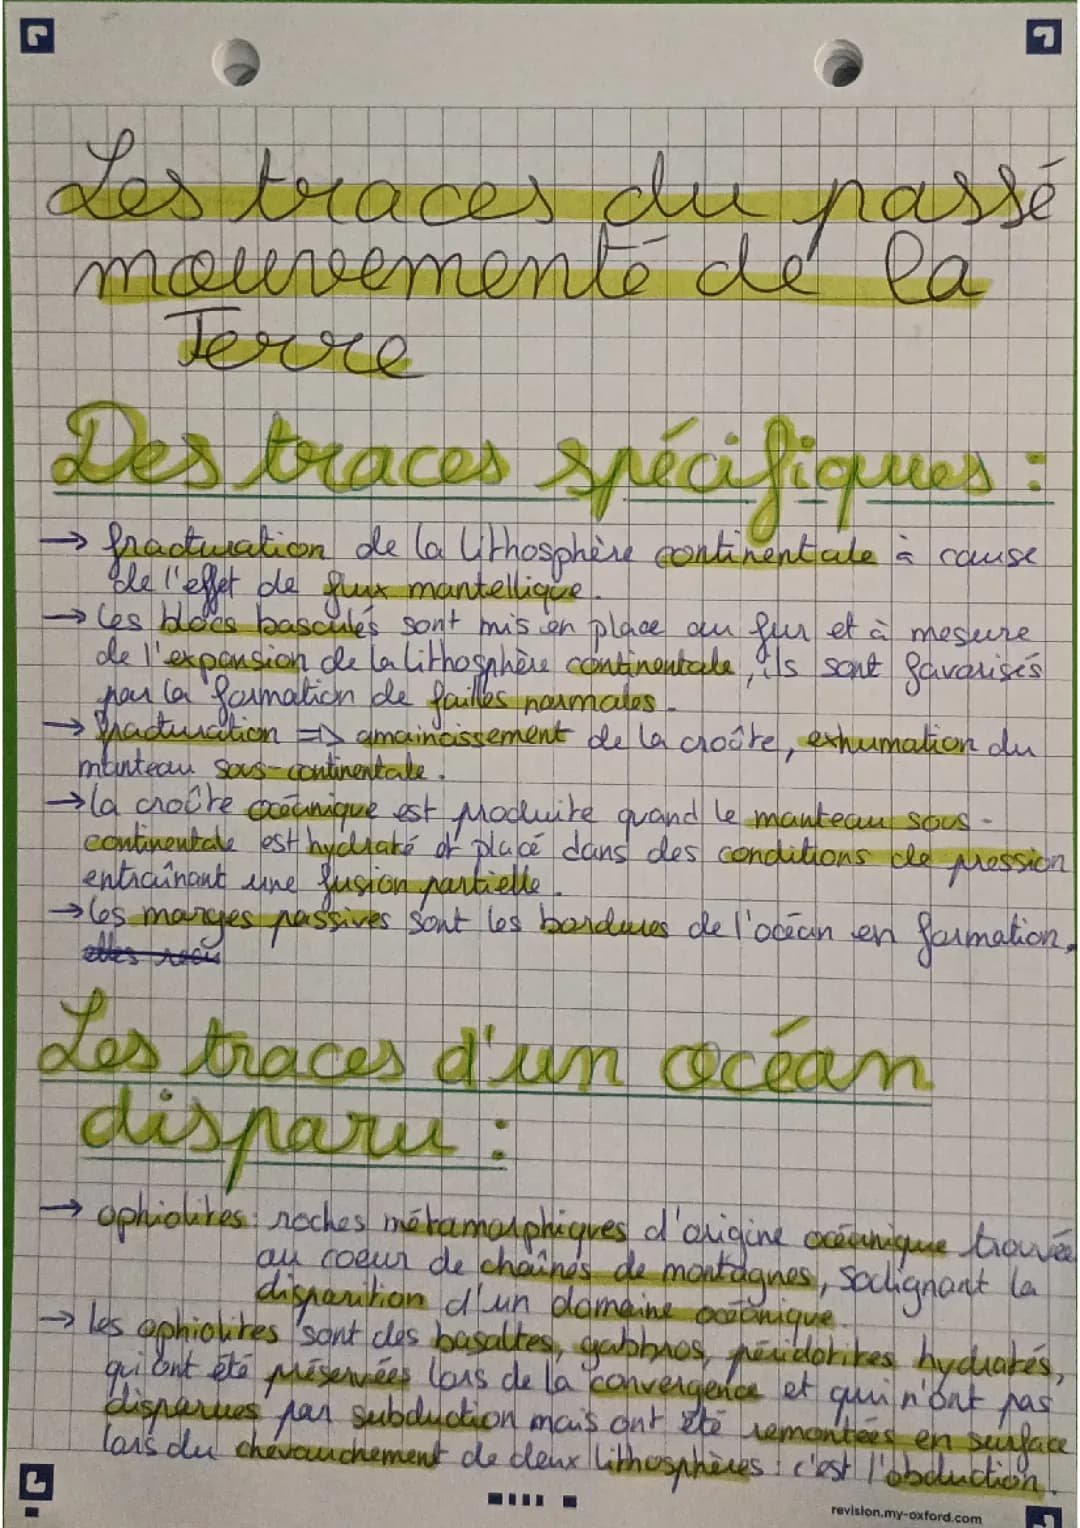 Les traces du passé
mouvementé de la
Terre
Des traces spécifiques :
→ fracturation de la lithosphère continentale à cause
de l'effet de flux mantellique.
→ les blocs basculés sont mis en place au fur et à mesure
de l'expansion de la lithosphère continentale, ils sont favorisés
par la formation de failles normales.
→ fracturation => amaincissement de la croûte, exhumation du
manteau sous-continentale.
→ la croûte océanique est produite quand le manteau sous-
continentale est hydraté et placé dans des conditions de pression
entraînant une fusion partielle.
→ les marges passives sont les bordures de l'océan en formation,
Les traces d'un océan
disparu :
→ ophiolites : roches métamorphiques d'origine océanique trouvée
au coeur de chaînes de montagnes, soulignant la
disparition d'un domaine océanique.
→ les ophiolites sont des basaltes, gabbros, péridotites hydratés,
qui ont été préservées lors de la convergence et qui n'ont pas
disparues par subduction mais ont été remontées en surface
lors du chevauchement de deux lithosphères : c'est l'obduction.
revision.my-oxford.com